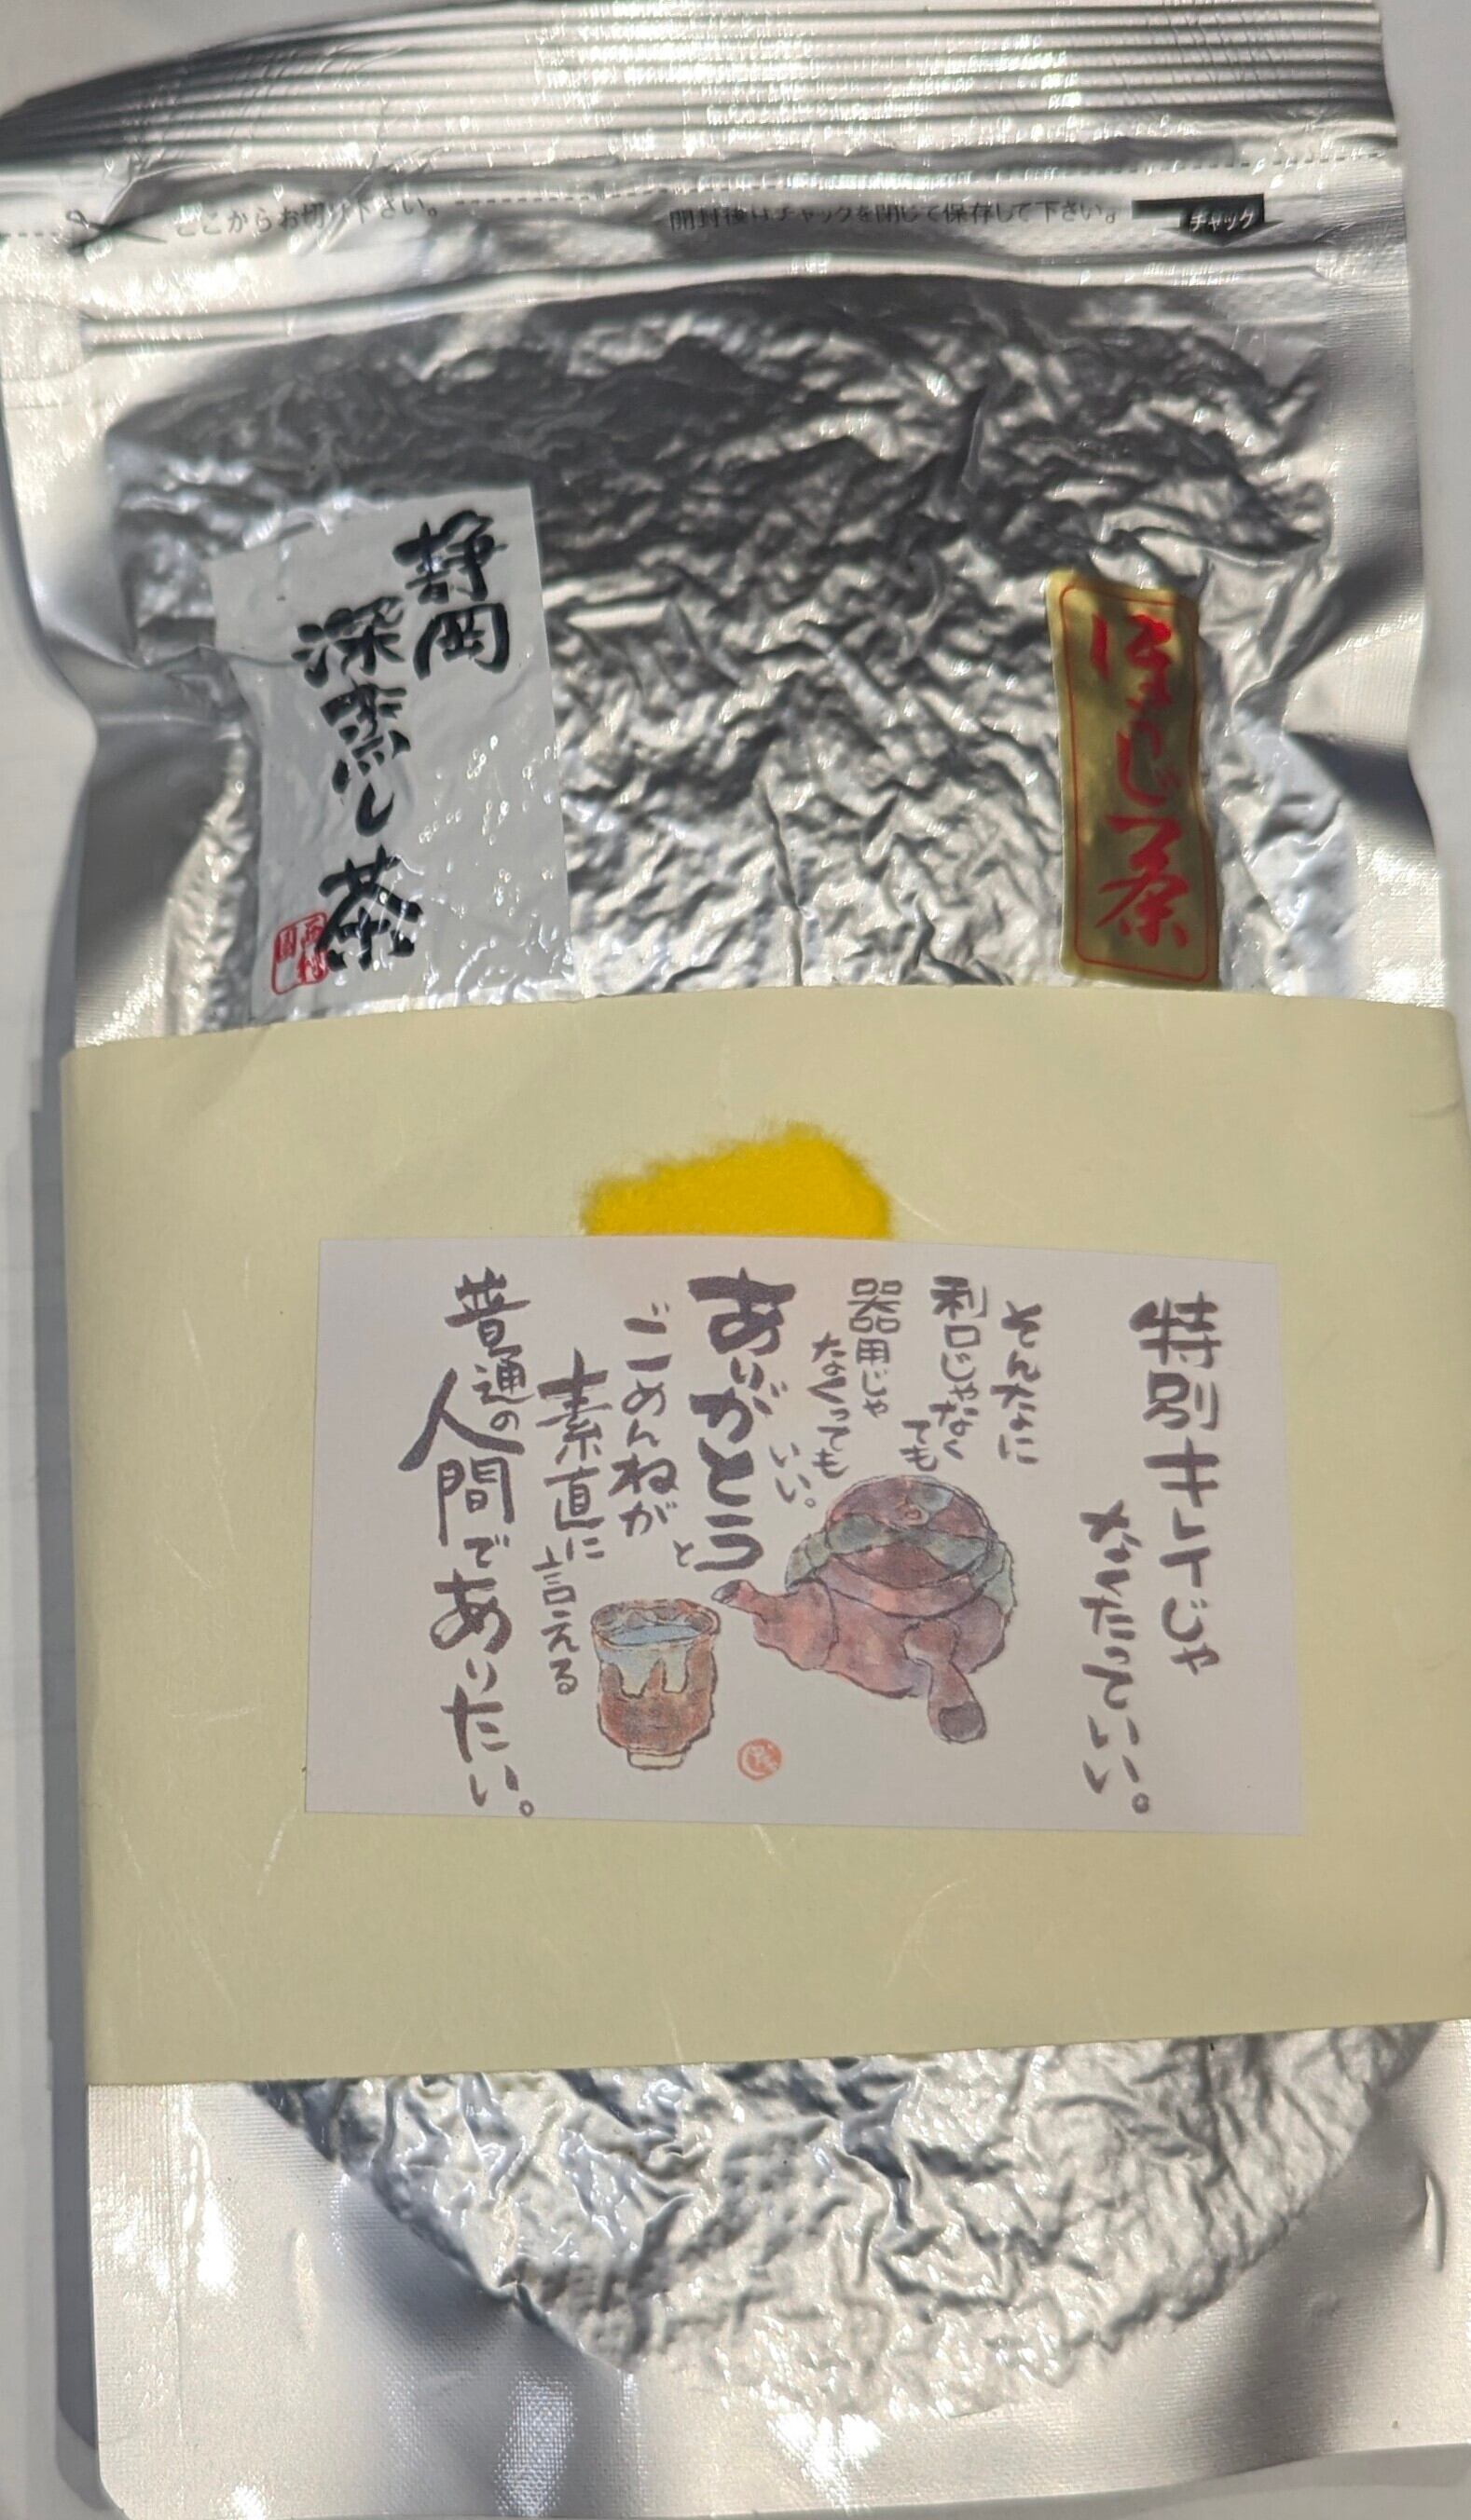 ここからお切り下さい。
開封後はチャックを閉じて保存して下さい。
チャック
静岡
深蒸し茶
ほうじ茶
特別キレイじゃ
なくたっていい。
そんなに
利口じゃなく
ても
器用じゃ
なくっても
いい。
ありがとう
と
ごめんねが
素直に
言える
普通の
人間でありたい。